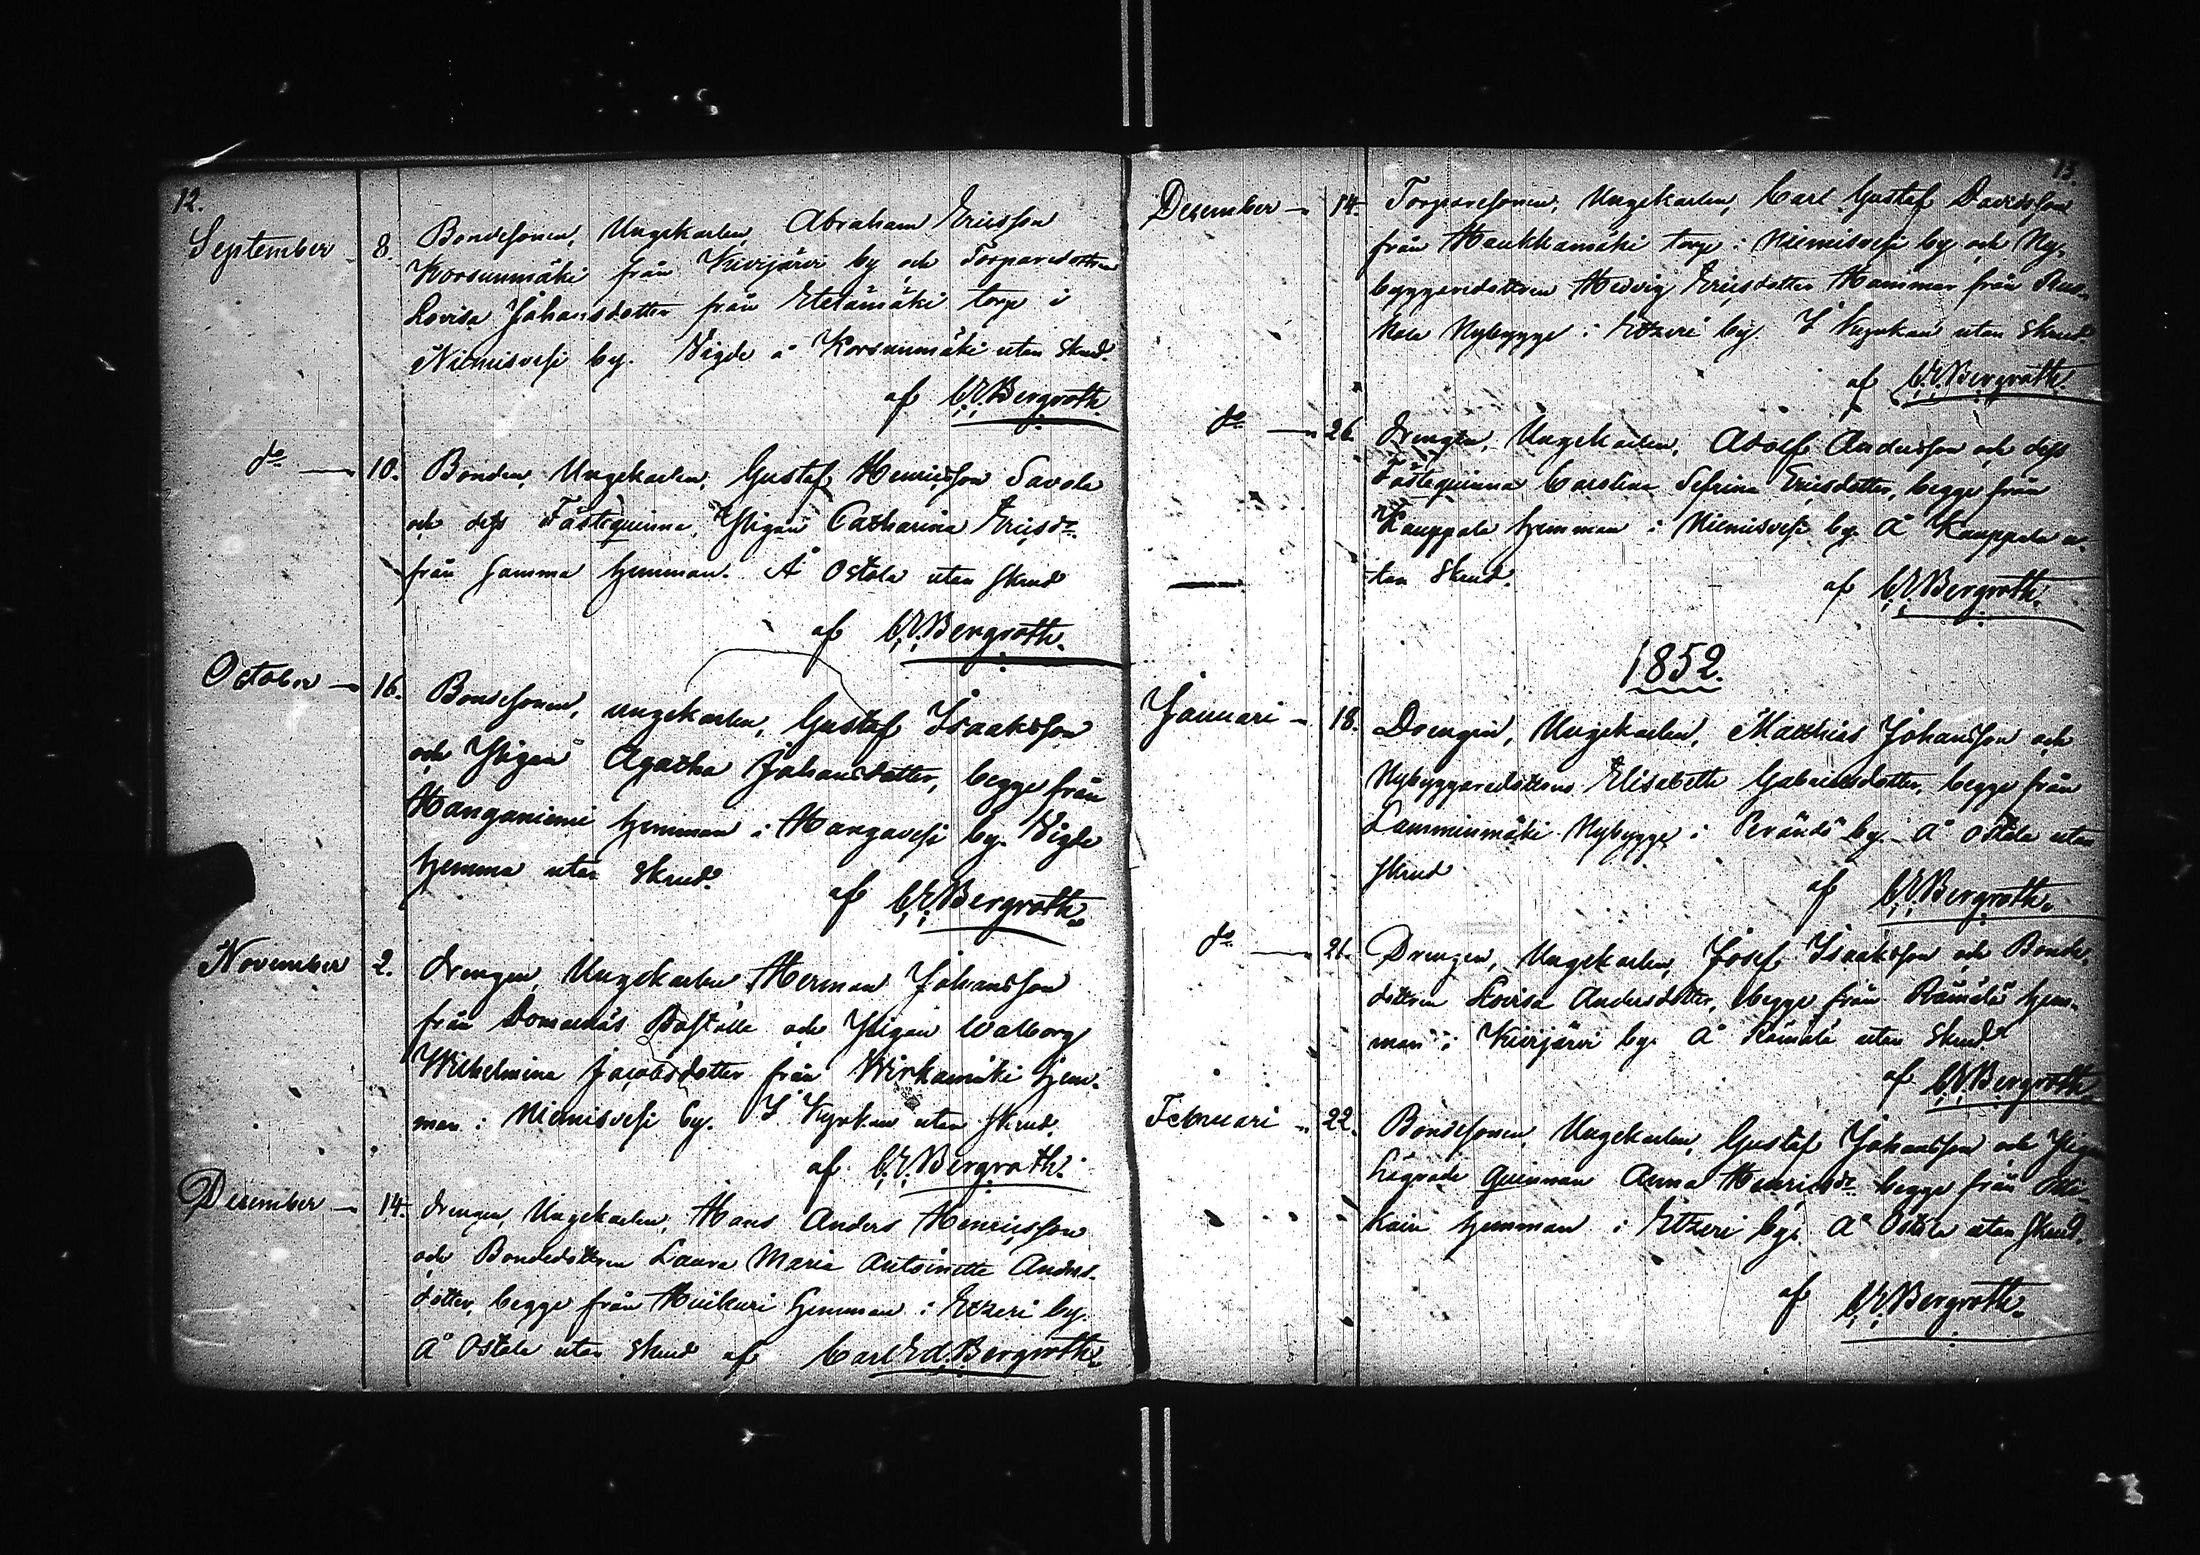 12.
September 8. Bondesonen, Ungekarlen, Abraham Ericsson
Korsunmäki från Kivijärvi by och Torparedottren
Lovisa Johansdotter från Etelämäki torp i
Niemisvesi by. Vigde å Korsunmäki utan skrud.
af C. E. Bergroth.
do — 10. Bonden, Ungekarlen, Gustaf Henricsson Savola
och dess Fästeqvinna, Pigan Catharina Ericsdr.
från samma hemman. Å Ostola utan skrud
af C. E. Bergroth.
October — 16. Bondesonen, ungekarlen, Gustaf Isaaksson
och Pigan Agatha Johansdotter, begge från
Hanganiemi hemman i Hangavesi by. Vigde
hemma utan skrud.
af C. E. Bergroth.
November 2. Drengen, Ungekarlen Herman Johansson
från Domarnäs Boställe och Pigan Walborg
Wilhelmina Jacobsdotter från Wirkamäki hem-
man i Niemisvesi by. I Kyrkan utan skrud.
af C. E. Bergroth.
December — 14. Drengen, Ungekarlen, Hans Anders Henricsson
och Bondedottren Laura Maria Antoinette Anders-
dotter, begge från Huikuri hemman i Etzeri by.
Å Ostola utan skrud af Carl Ed. Bergroth.
13.
December — 14. Torparesonen, Ungekarlen, Carl Gustaf Davidsson
från Haukkamäki torp i Niemisvesi by och Ny-
byggaredottren Hedvig Ericsdotter Hammar från
Nybygge i Etzeri by. I Kyrkan utan skrud.
af C. E. Bergroth.
do — 26. Drengen, Ungekarlen, Adolf Andersson och dess
Fästeqvinna Carolina Sefrina Ericsdotter, begge från
Kauppala hemman i Niemisvesi by. Å Kauppala u-
tan skrud.
af C. E. Bergroth.
1852.
Januari — 18. Drengen, Ungekarlen, Matthias Johansson och
Nybyggaredottren Elisabeth Gabrielsdotter, begge från
Lamminmäki Nybygge i Perändö by. Å Ostola utan
skrud
af C. E. Bergroth.
do — 21. Drengen, Ungekarlen, Josef Isaaksson och Bonde-
dottren Lovisa Andersdotter, begge från Rämälä hem-
man i Kivijärvi by. Å Rämälä utan skrud.
af C. E. Bergroth.
Februari — 22. Bondesonen Ungekarlen, Gustaf Johansson och Pigan
Lägrade Quinnan Anna Henricsdr. begge från
hemman i Etzeri by. Å Ostola utan skrud.
af C. E. Bergroth.